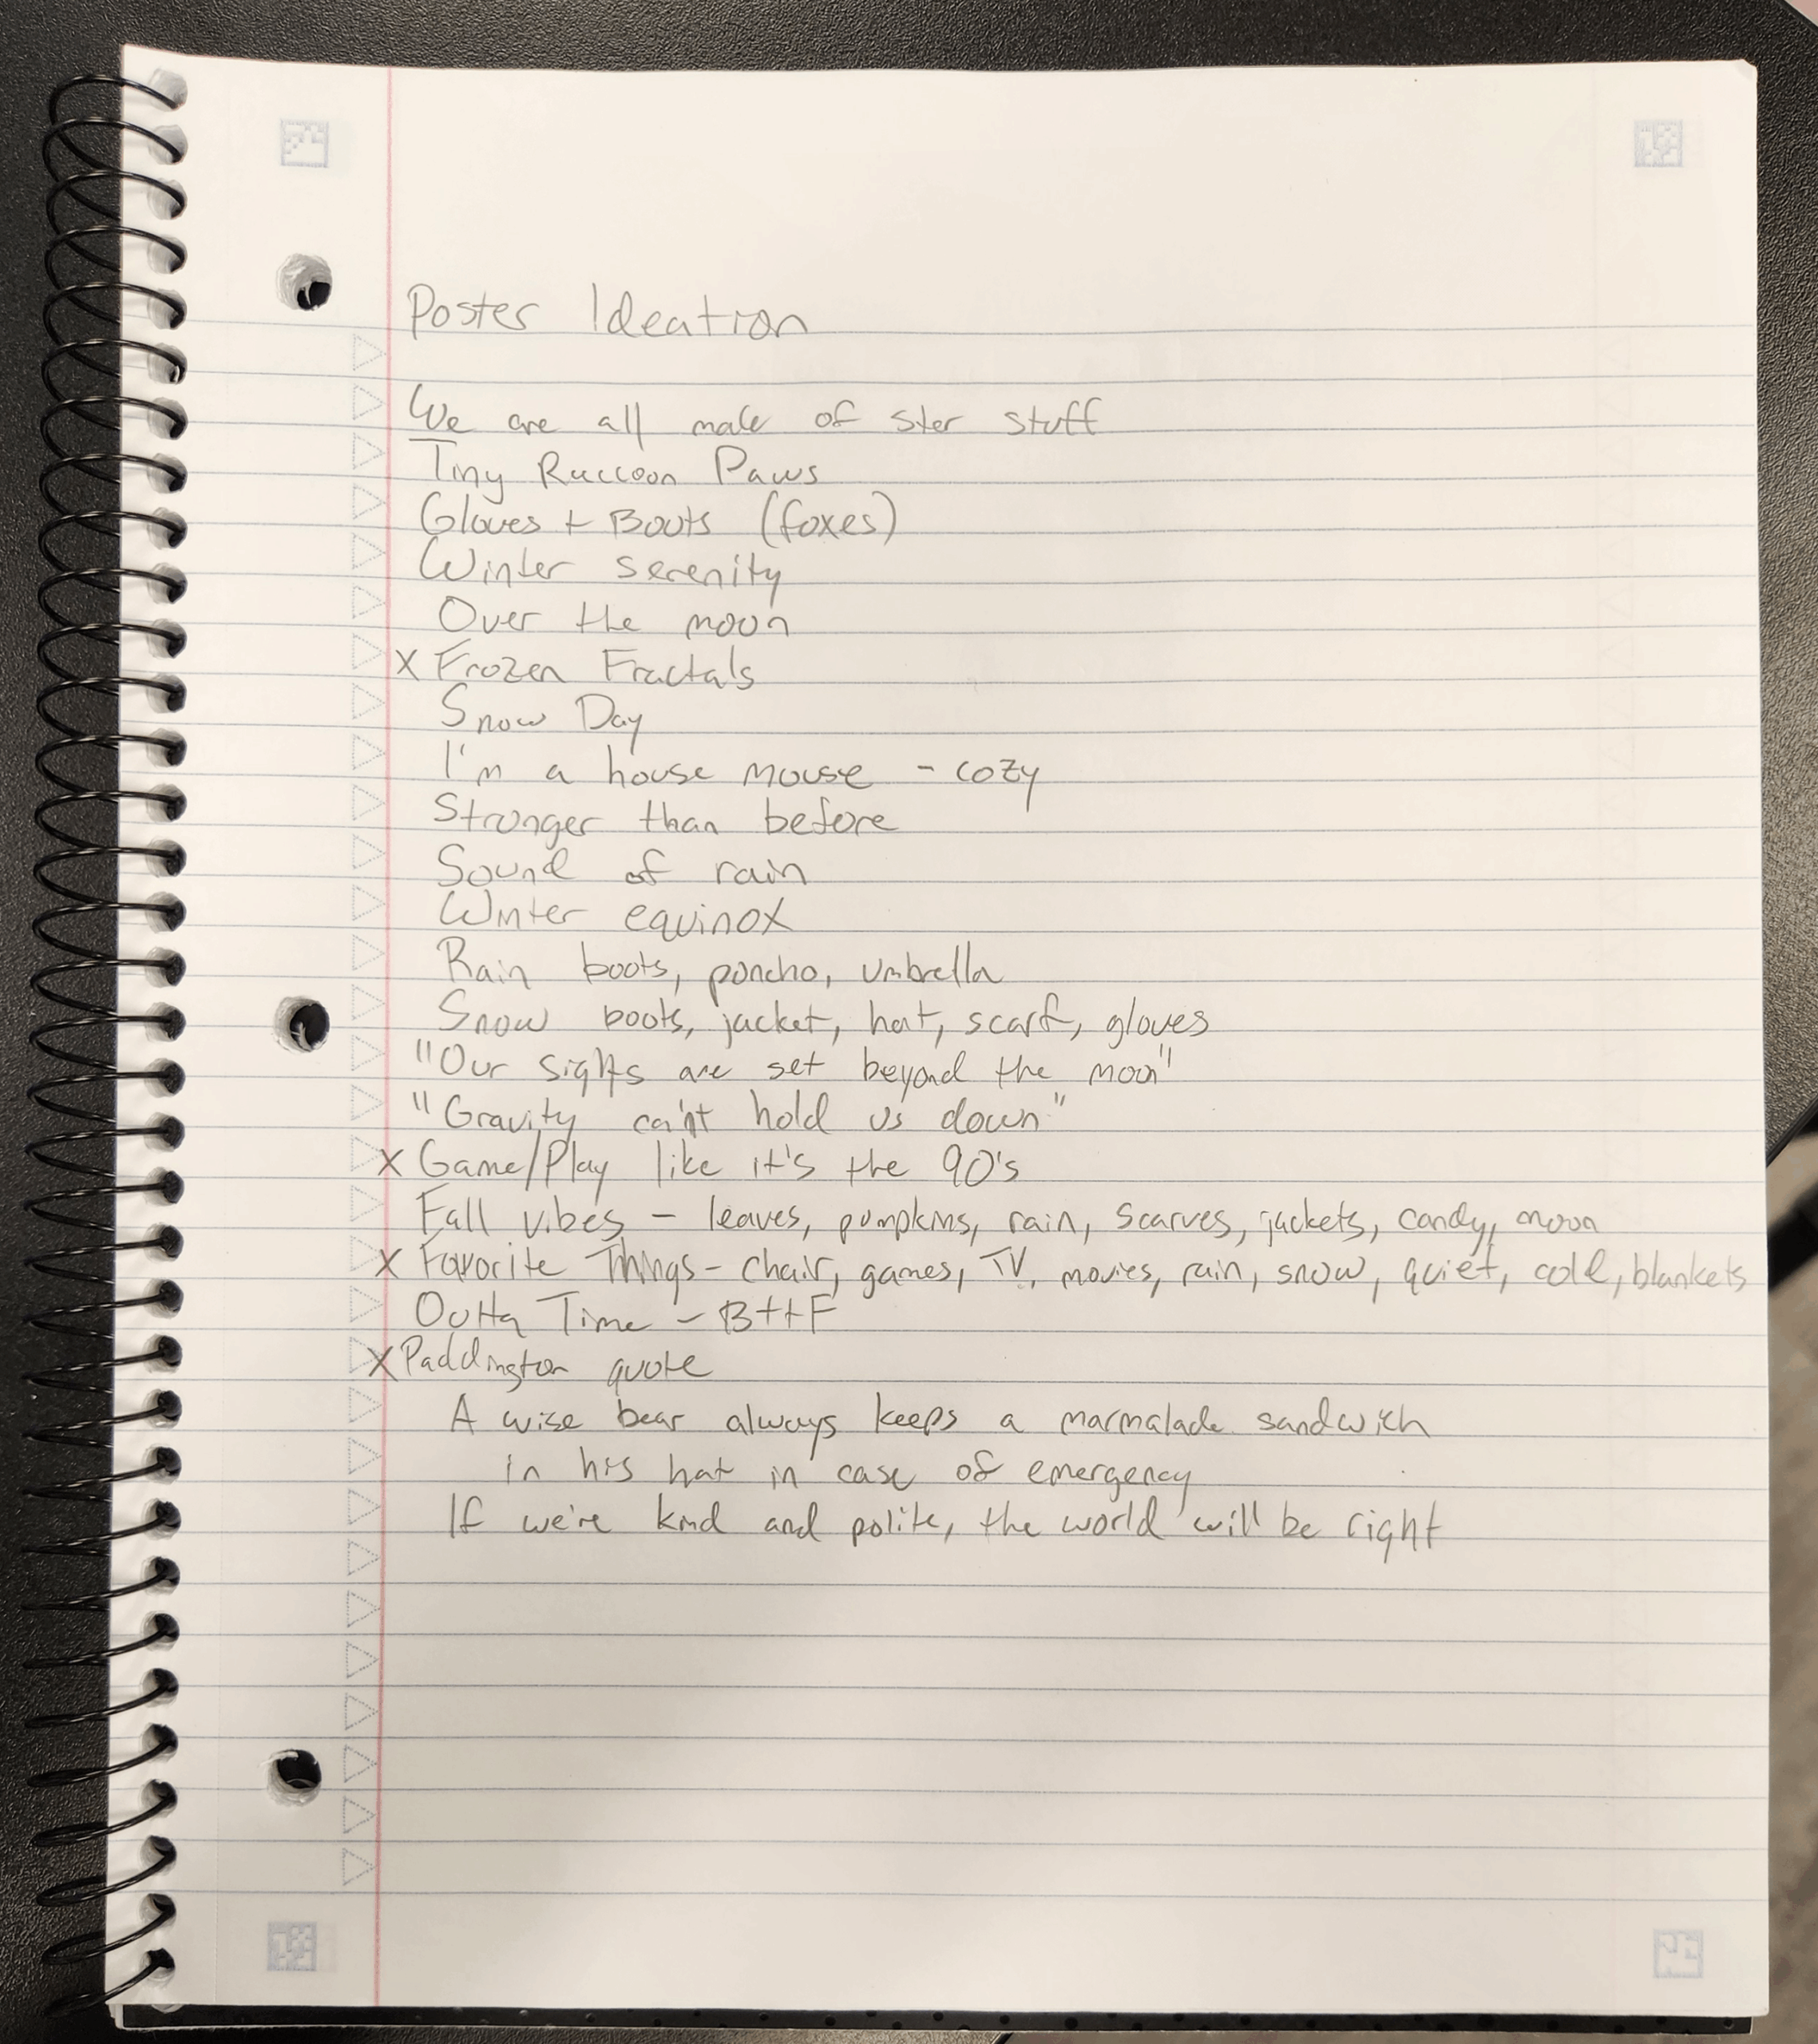 Poster Ideation
We are all made of star stuff
Tiny Raccoon Paws
Gloves + Boots (foxes)
Winter serenity
Over the moon
X Frozen Fractals
Snow Day
I'm a house mouse - cozy
Stronger than before
Sound of rain
Winter equinox
Rain boots, poncho, umbrella
Snow boots, jacket, hat, scarf, gloves
"Our sights are set beyond the moon"
"Gravity can't hold us down"
X Game/Play like it's the 90's
Fall vibes - leaves, pumpkins, rain, scarves, jackets, candy, moon
X Favorite Things - chair, games, TV, movies, rain, snow, quiet, cold, blankets
Outta Time - BttF
X Paddington quote
A wise bear always keeps a marmalade sandwich
in his hat in case of emergency
If we're kind and polite, the world will be right